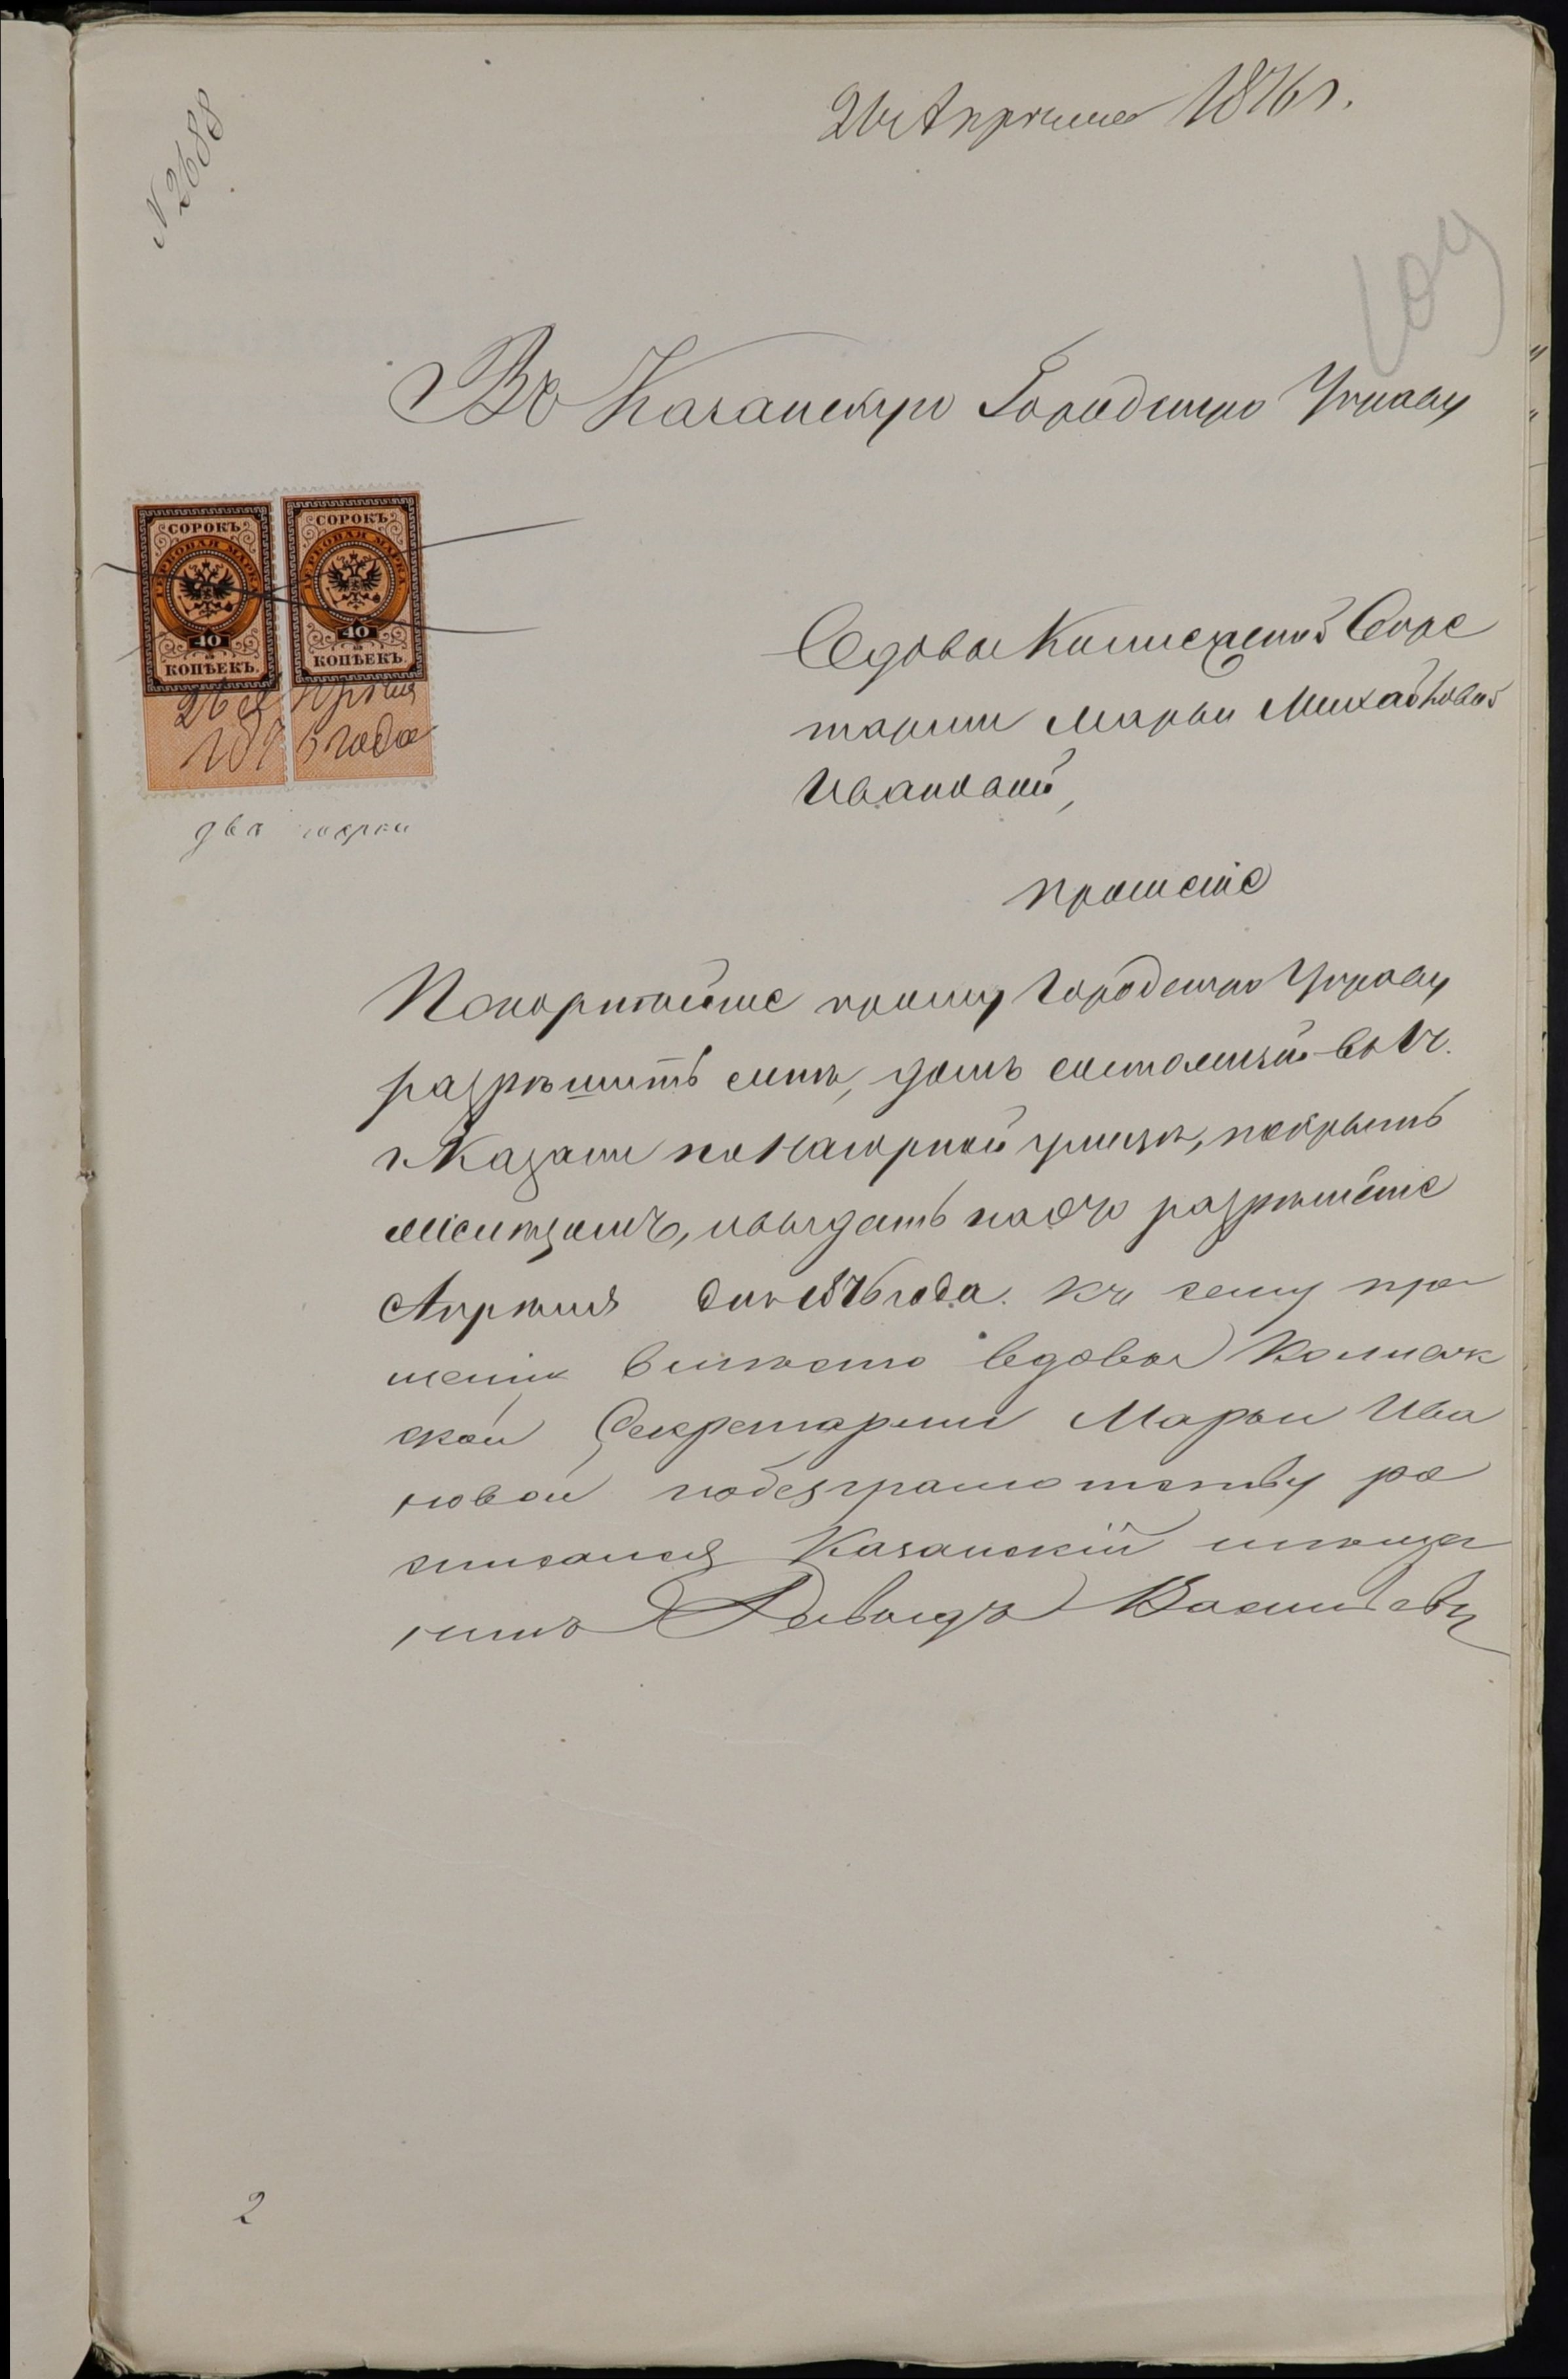 26 Апрѣля 1876 г.
N 2688
109
Въ Казанскую Городскую Управу
СОРОКЪ СОРОКЪ
ГЕРБОВАЯ МАРКА ГЕРБОВАЯ МАРКА
40 40
КОПѢЕКЪ. КОПѢЕКЪ.
26 Апрѣля
1876 года
две марки
Вдовы Колежской Секре
тарши Марьи Михайловой
Ивановой,
прошеніе
Покорнѣйше прошу Городскую Управу
разрѣшить мнѣ, домъ состоящій во 2 ч.
г. Казани по Нагорной улицѣ, покрыть
тесомъ, и выдать на это разрѣшеніе
Апрѣля дня 1876 года. Къ сему про
шенію вмѣсто вдовы Колежс
ской Секретарши Марьи Ива
новой по безграмотству ро
списался Казанскій мѣща
нинъ Васильевъ
2